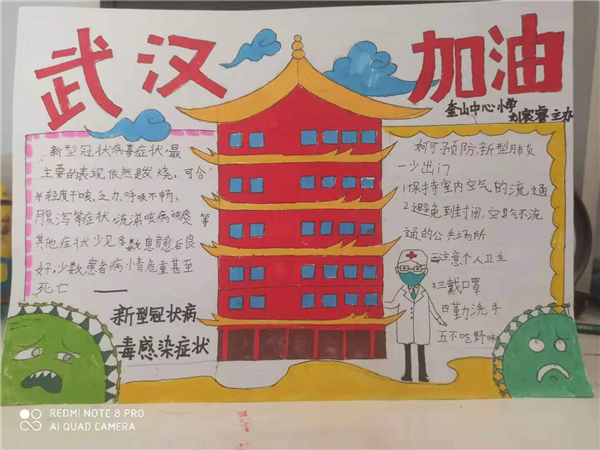 武汉
加油
奎山中心小学
刘家睿 主办
新型冠状病毒症状,最
主要的表现依然是发烧,可合
并轻度干咳、乏力、呼吸不畅、
腹泻等症状,流涕咳痰 等
其他症状少见多数患者愈后良
好,少数患者病情危重甚至
死亡
新型冠状病
毒感染症状
如何预防新型肺炎
一少出门
1保持室内空气的流通
2避免到封闭,空气不流
通的公共场所
二注意个人卫生
三戴口罩
四勤洗手
五不吃野味
REDMI NOTE 8 PRO
AI QUAD CAMERA